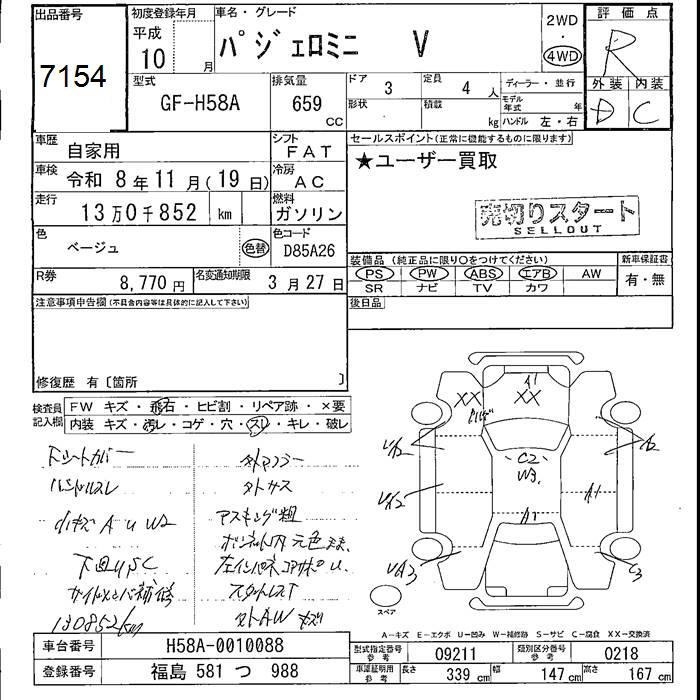 出品番号
7154
初度登録年月
平成
10 月
車名・グレード
パジェロミニ V
2WD
・
4WD
評価点
R
外装 内装
D C
型式
GF-H58A
排気量
659 CC
ドア 3
定員 4 人
形状
積載 kg
ディーラー・並行
モデル年式 年
ハンドル 左・右
車歴 自家用
シフト FAT
車検 令和 8年 11月(19日)
冷房 AC
走行 13万0千852 km
燃料 ガソリン
色 ベージュ 色替
色コード D85A26
R券 8,770円
名変通知期限 3月27日
セールスポイント(正常に機能するものに限ります)
★ユーザー買取
売切りスタート
SELLOUT
装備品(純正品に限り○をつけてください)
新車保証書
PS PW ABS エアB AW
有・無
SR ナビ TV カワ
後日品
注意事項申告欄(不具合内容等は具体的に記入して下さい)
修復歴 有〔箇所 〕
検査員記入欄
FW キズ・飛石・ヒビ割・リペア跡・×要
内装 キズ・汚レ・コゲ・穴・スレ・キレ・破レ
ハンドルスレ
下回りSC
130852km
外マフラー
マスキング粗
ボンネット内元色まま
スタッドレスT
外AW キズ
A1
XX XX
C2
W3
A2
A1
A1
C3
スペア
A-キズ E-エクボ U-凹み W-補修跡 S-サビ C-腐食 XX-交換済
車台番号 H58A-0010088
登録番号 福島 581 つ 988
型式指定番号 参考 09211
類別区分番号 参考 0218
車検証明用 参考
長さ 339 cm
幅 147 cm
高さ 167 cm